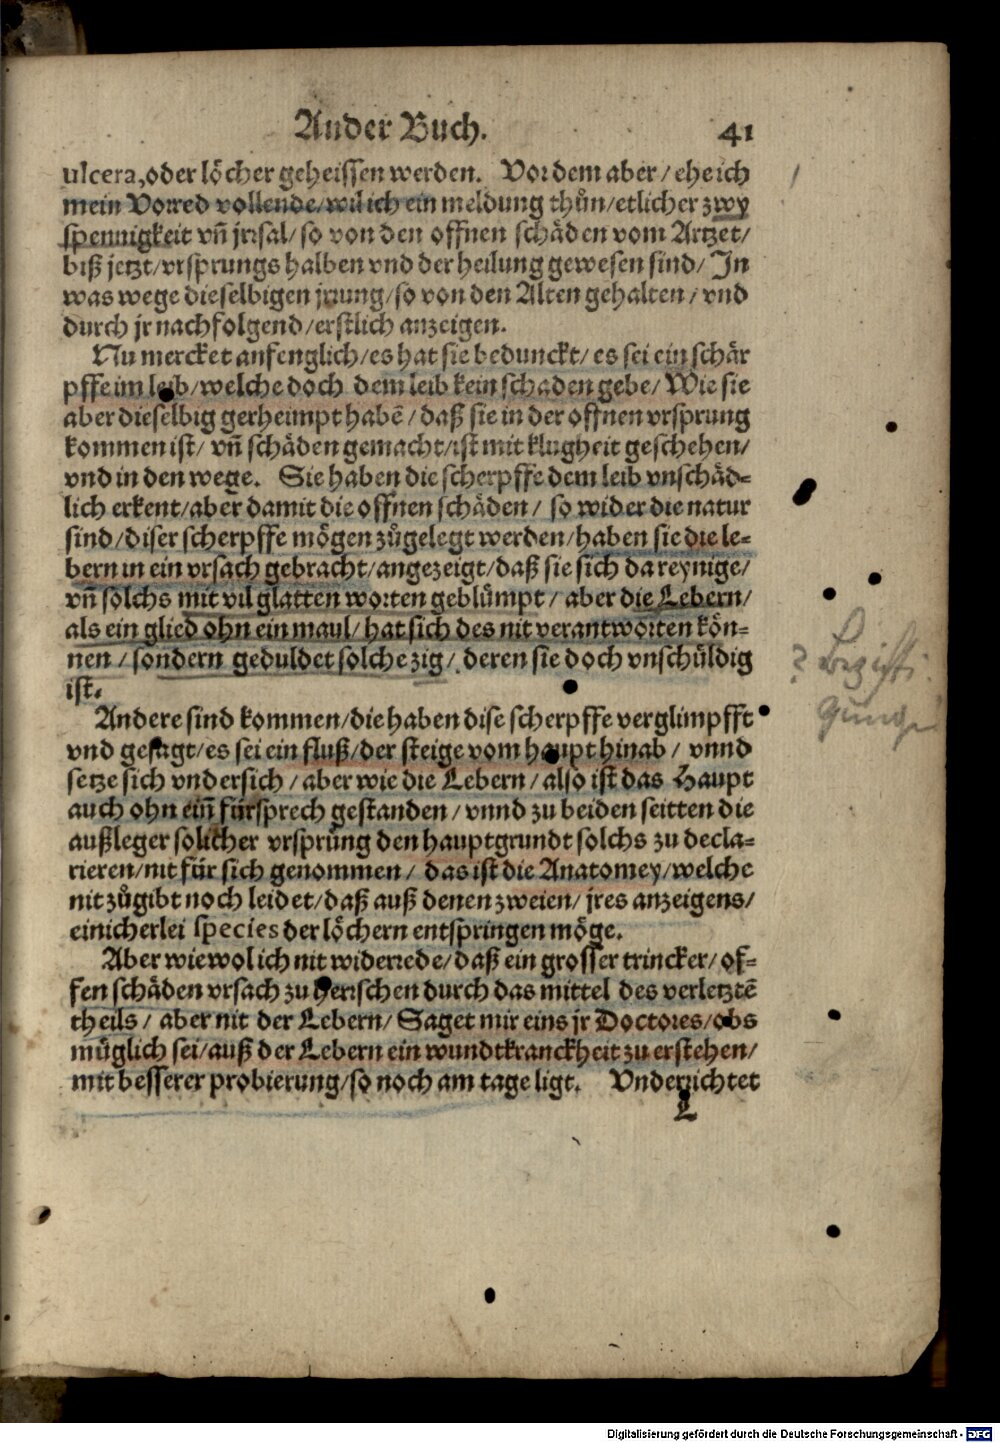 Ander Buch. 41
ulcera, oder löcher geheissen werden. Vor dem aber / ehe ich
mein Vorred vollende / wil ich ein meldung thůn / etlicher zwy
spennigkeit vñ jrsal / so von den offnen schäden vom Artzet /
biß jetzt / vrsprungs halben vnd der heilung gewesen sind / In
was wege dieselbigen jrrung / so von den Alten gehalten / vnd
durch jr nachfolgend / erstlich anzeigen.
Nu mercket anfenglich / es hat sie bedunckt / es sei ein schär
pffe im leib / welche doch dem leib kein schaden gebe / Wie sie
aber dieselbig gerheimpt habē / daß sie in der offnen vrsprung
kommen ist / vñ schäden gemacht / ist mit klugheit geschehen /
vnd in den wege. Sie haben die scherpffe dem leib vnschäd=
lich erkent / aber damit die offnen schäden / so wider die natur
sind / diser scherpffe mögen zůgelegt werden / haben sie die le=
bern in ein vrsach gebracht / angezeigt / daß sie sich da reynige /
vñ solchs mit vil glatten worten geblůmpt / aber die Lebern /
als ein glied ohn ein maul / hat sich des nit verantworten kön=
nen / sondern geduldet solche zig / deren sie doch vnschüldig
ist.
Andere sind kommen / die haben dise scherpffe verglimpfft
vnd gesagt / es sei ein fluß / der steige vom haupt hinab / vnnd
setze sich vndersich / aber wie die Lebern / also ist das Haupt
auch ohn eiñ fürsprech gestanden / vnnd zu beiden seitten die
außleger solicher vrsprüng den hauptgrundt solchs zu decla=
rieren / nit für sich genommen / das ist die Anatomey / welche
nit zůgibt noch leidet / daß auß denen zweien / jres anzeigens /
einicherlei species der löchern entspringen möge.
Aber wiewol ich nit widerrede / daß ein grosser trincker / of=
fen schäden vrsach zu herrschen durch das mittel des verletztē
theils / aber nit der Lebern / Saget mir eins jr Doctores / obs
müglich sei / auß der Lebern ein wundtkranckheit zu erstehen /
mit besserer probierung / so noch am tage ligt. Vnderrichtet
L
Digitalisierung gefördert durch die Deutsche Forschungsgemeinschaft - DFG